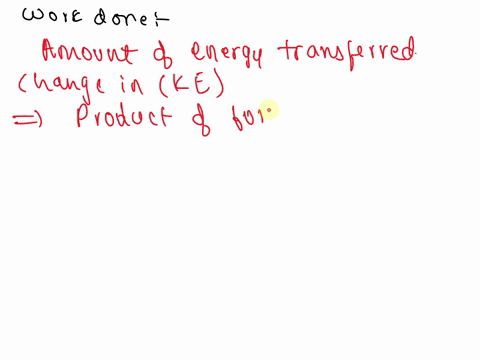 Work done:-
Amount of energy transferred
change in (KE)
⇒ Product of for